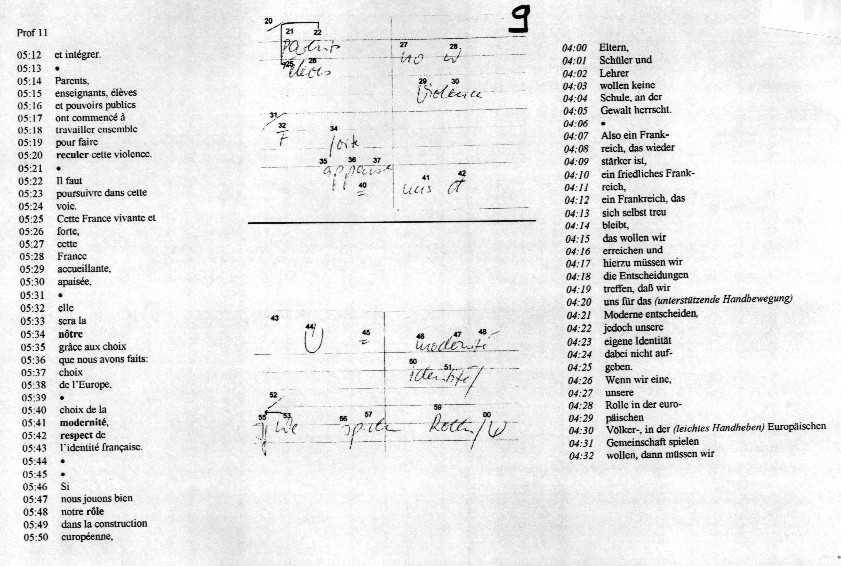 9
Prof 11
05:12 et intégrer.
05:13 •
05:14 Parents,
05:15 enseignants, élèves
05:16 et pouvoirs publics
05:17 ont commencé à
05:18 travailler ensemble
05:19 pour faire
05:20 reculer cette violence.
05:21 •
05:22 Il faut
05:23 poursuivre dans cette
05:24 voie.
05:25 Cette France vivante et
05:26 forte,
05:27 cette
05:28 France
05:29 accueillante,
05:30 apaisée,
05:31 •
05:32 elle
05:33 sera la
05:34 nôtre
05:35 grâce aux choix
05:36 que nous avons faits:
05:37 choix
05:38 de l'Europe,
05:39 •
05:40 choix de la
05:41 modernité,
05:42 respect de
05:43 l'identité française.
05:44 •
05:45 •
05:46 Si
05:47 nous jouons bien
05:48 notre rôle
05:49 dans la construction
05:50 européenne,
20
21 22
parents
27 28
no
25 26
élèves
29 30
Violence
31
32
F
34
forte
35 36 37
apaisée
40
=
41 42
43
44
45
=
46 47 48
modernité
50 51
identité/
52
55 53
56 57
59 60
04:00 Eltern,
04:01 Schüler und
04:02 Lehrer
04:03 wollen keine
04:04 Schule, an der
04:05 Gewalt herrscht.
04:06 •
04:07 Also ein Frank-
04:08 reich, das wieder
04:09 stärker ist,
04:10 ein friedliches Frank-
04:11 reich,
04:12 ein Frankreich, das
04:13 sich selbst treu
04:14 bleibt,
04:15 das wollen wir
04:16 erreichen und
04:17 hierzu müssen wir
04:18 die Entscheidungen
04:19 treffen, daß wir
04:20 uns für das (unterstützende Handbewegung)
04:21 Moderne entscheiden,
04:22 jedoch unsere
04:23 eigene Identität
04:24 dabei nicht auf-
04:25 geben.
04:26 Wenn wir eine,
04:27 unsere
04:28 Rolle in der euro-
04:29 päischen
04:30 Völker-, in der (leichtes Handheben) Europäischen
04:31 Gemeinschaft spielen
04:32 wollen, dann müssen wir